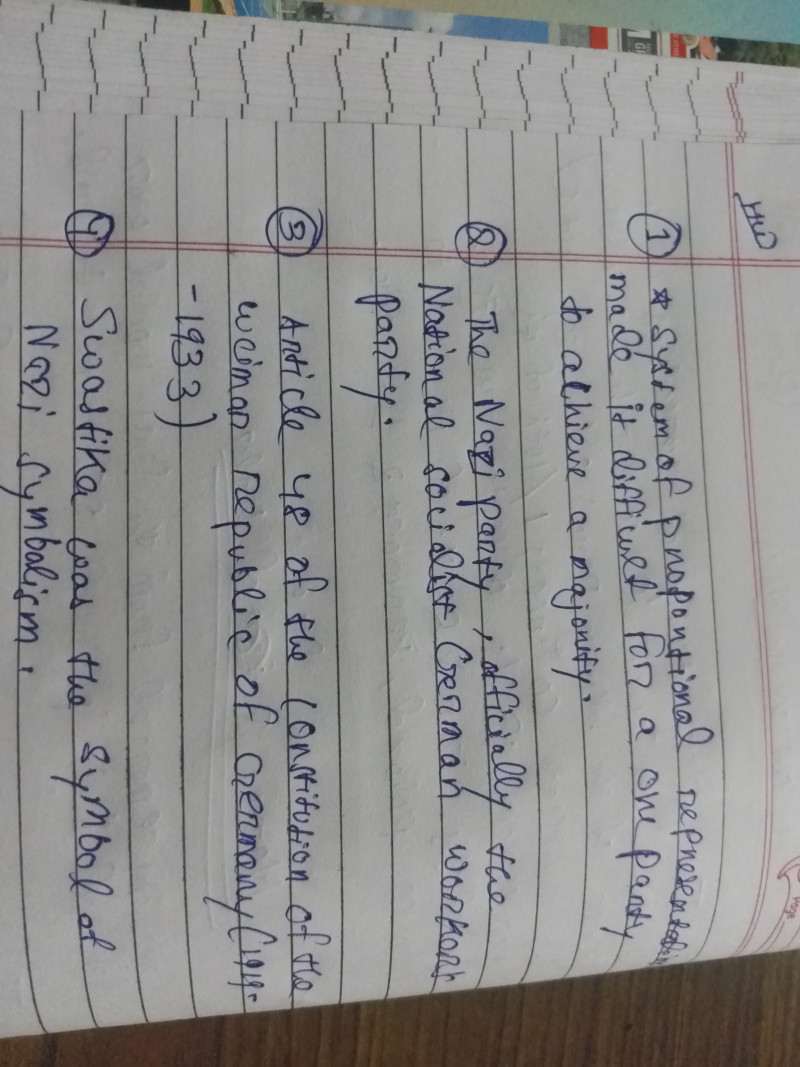 HW
① * System of propontional representation
made it difficult for a one party
to achieve a majority.
② The Nazi party, officially the
National socialist German workers
party.
③ Article 48 of the constitution of the
weimar republic of Germany (1919-
-1933)
④ Swastika was the symbol of
Nazi symbolism.
Page